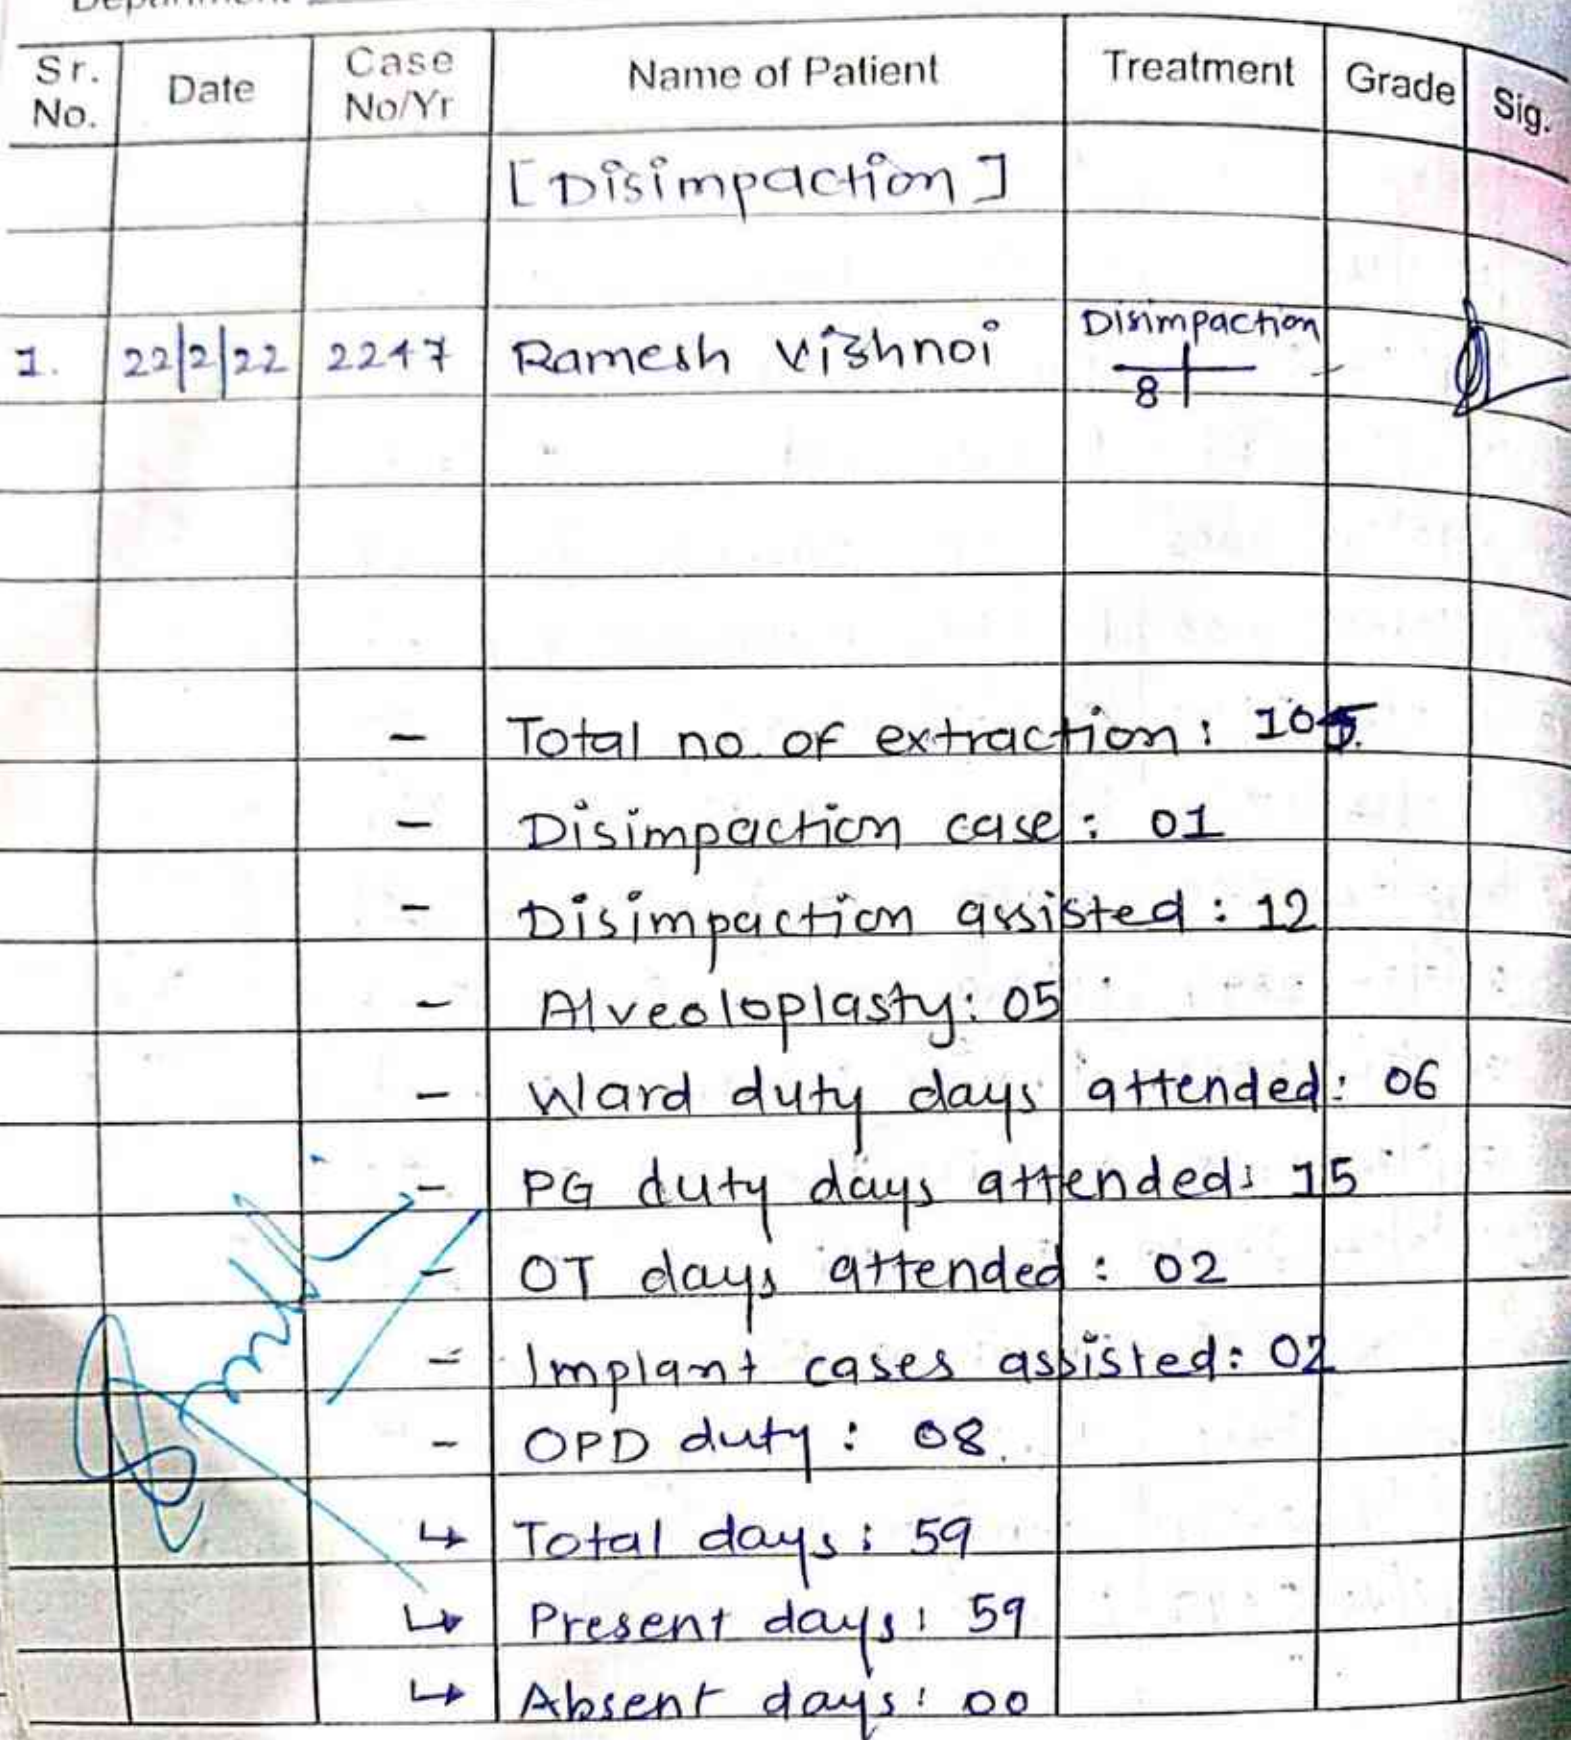 Sr. No. Date Case No/Yr Name of Patient Treatment Grade Sig.
[Disimpaction]
1. 22/2/22 2247 Ramesh Vishnoi Disimpaction 8
- Total no. of extraction: 105.
- Disimpaction case: 01
- Disimpaction assisted: 12
- Alveoloplasty: 05
- Ward duty days attended: 06
- PG duty days attended: 15
- OT days attended: 02
- Implant cases assisted: 02
- OPD duty: 08.
↳ Total days: 59
↳ Present days: 59
↳ Absent days: 00